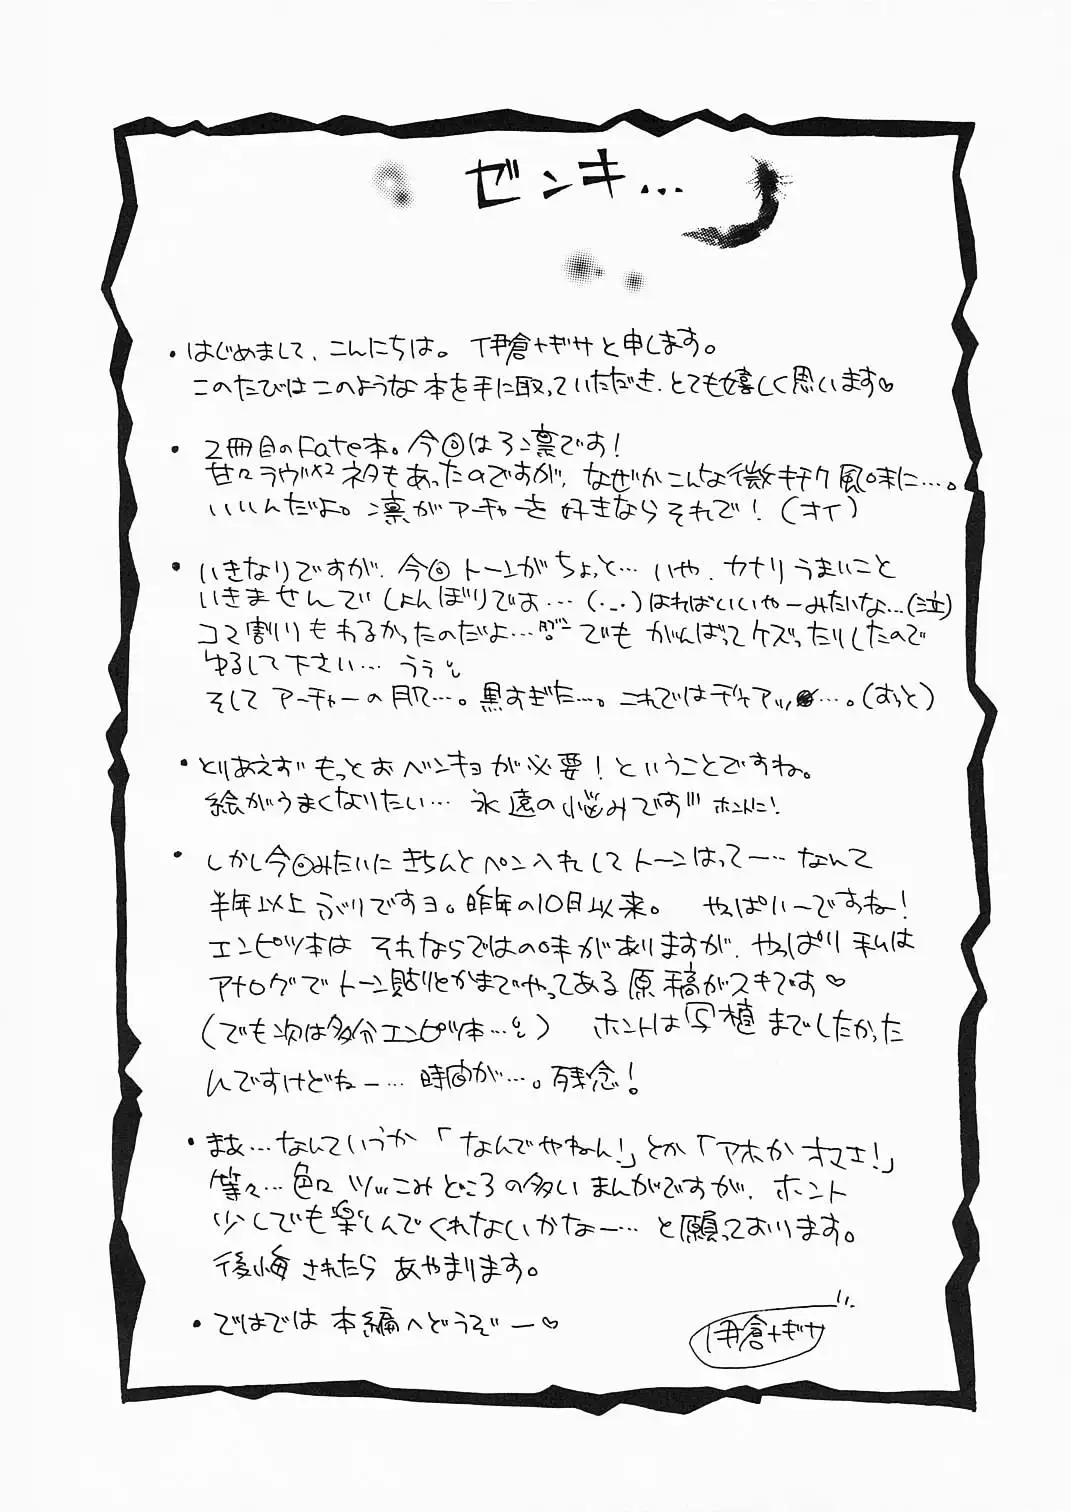 ゼンキ…
・はじめまして、こんにちは。伊倉ナギサと申します。
このたびはこのような本を手に取っていただき、とても嬉しく思います♡
・2冊目のFate本。今回は弓凛です!
甘々ラヴ××ネタもあったのですが、なぜかこんな微キチク風味に…。
いいんだよ。凛がアーチャーを好きならそれで!(オイ)
・いきなりですが、今回トーンがちょっと…いや、カナリうまいこと
いきませんでしょんぼりですよ…(._.)はればいいやーみたいな…(泣)
コマ割りもわるかったのだよ… でもがんばってケズったりしたので
ゆるして下さい…ううぅ
そしてアーチャーの肌…。黒すぎた…。これではディア…。(もっと)
・とりあえずもっとおベンキョが必要!ということですね。
絵がうまくなりたい…永遠の悩みです!!! ホントに!
・しかし今回みたいにきちんとペン入れしてトーンはってー…なんて
半年以上ぶりですヨ。昨年の10月以来。 やっぱいーですね!
エンピツ本はそれならではの味がありますが、やっぱり私は
アナログでトーン貼りとかまでやってある原稿がスキです♡
(でも次は多分エンピツ本…) ホントは写植までしたかった
んですけどねー…時間が…。残念!
・まあ…なんていうか「なんでやねん!」とか「アホかオマエ!」
等々…色々ツッこみどころの多いまんがですが、ホント
少しでも楽しんでくれないかなー…と願っております。
後悔されたらあやまります。
・ではでは本編へどうぞー♡
伊倉ナギサ